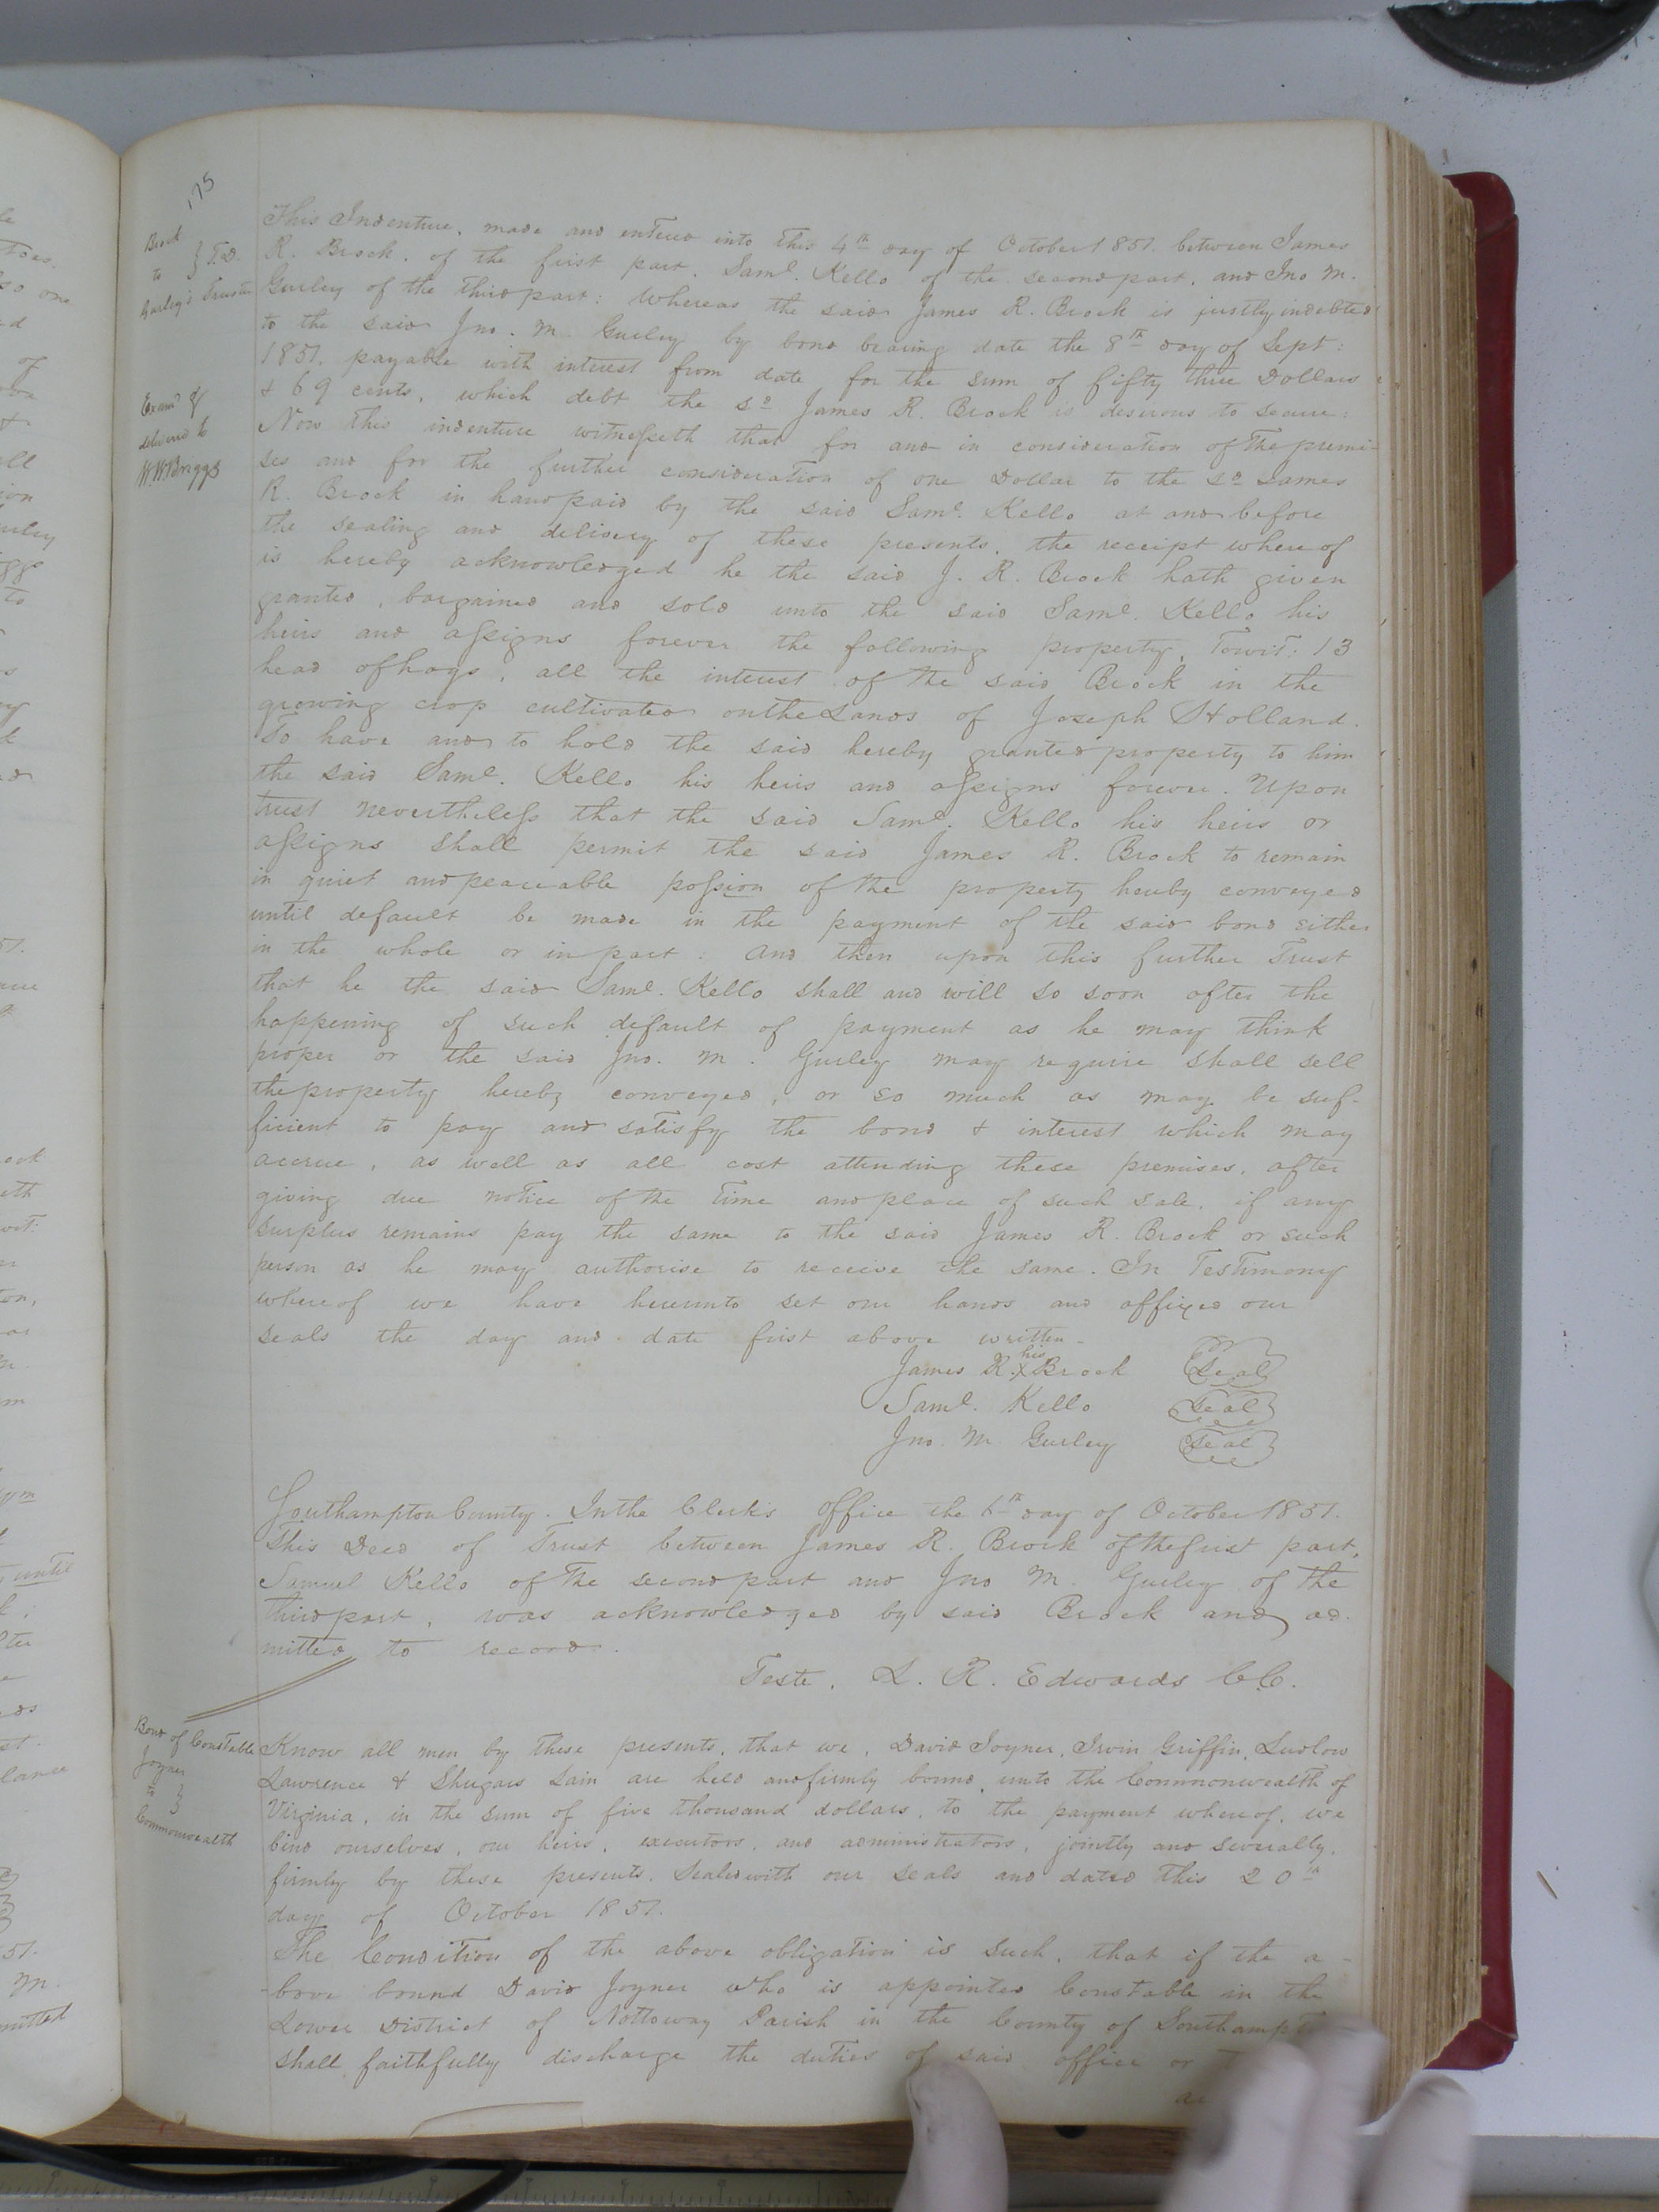 175
Brock
to } T.D.
Gurley's Trustee
Exam.d &
delivered to
W.W. Briggs
This Indenture, made and entered into this 4th day of October 1851. between James
R. Brock, of the first part, Saml. Kello of the second part, and Jno M.
Gurley of the third part: Whereas the said James R. Brock is justly indebted
to the said Jno. M. Gurley by bond bearing date the 8th day of Sept:
1851. payable with interest from date for the sum of fifty three Dollars
& 69 cents, which debt the sd James R. Brock is desirous to secure:
Now this indenture witnesseth that for and in consideration of the premi-
ses and for the further consideration of one Dollar to the sd James
R. Brock in hand paid by the said Saml. Kello at and before
the sealing and delivery of these presents, the receipt whereof
is hereby acknowledged he the said J. R. Brock hath given
granted, bargained and sold unto the said Saml. Kello his
heirs and assigns forever the following property, Towit: 13
head of hogs, all the interest of the said Brock in the
growing crop cultivated on the Lands of Joseph Holland.
To have and to hold the said hereby granted property to him
the said Saml. Kello his heirs and assigns forever. Upon
trust nevertheless that the said Saml. Kello his heirs or
assigns shall permit the said James R. Brock to remain
in quiet and peaceable possion of the property hereby conveyed
until default be made in the payment of the said bond either
in the whole or in part: And then upon this further Trust
that he the said Saml. Kello shall and will so soon after the
happening of such default of payment as he may think
proper or the said Jno. M. Gurley may require shall sell
the property hereby conveyed, or so much as may be suf-
ficient to pay and satisfy the bond & interest which may
accrue, as well as all cost attending these premises, after
giving due notice of the time and place of such sale, if any
surplus remains pay the same to the said James R. Brock or such
person as he may authorise to receive the same. In Testimony
whereof we have hereunto set our hands and affixed our
seals the day and date first above written-
his
James R. X Brock Seal
Saml. Kello Seal
Jno. M. Gurley Seal
Southampton County. In the Clerk's office the 6th day of October 1851.
This Deed of Trust between James R. Brock of the first part,
Samuel Kello of the second part and Jno M. Gurley of the
third part, was acknowledged by said Brock and ad-
mitted to record.
Teste, L. R. Edwards C.C.
Bond of Constable
Joyner
to }
Commonwealth
Know all men by these presents, that we, David Joyner, Irvin Griffin, Ludlow
Lawrence & Shugars Lain are held and firmly bound, unto the Commonwealth of
Virginia, in the sum of five thousand dollars, to the payment whereof, we
bind ourselves, our heirs, executors, and administrators, jointly and severally,
firmly by these presents. Sealed with our seals and dated this 20th
day of October 1851.
The Condition of the above obligation is such, that if the a-
-bove bound David Joyner who is appointed Constable in the
Lower District of Nottoway Parish in the County of Southampt
shall faithfully discharge the duties of said office or